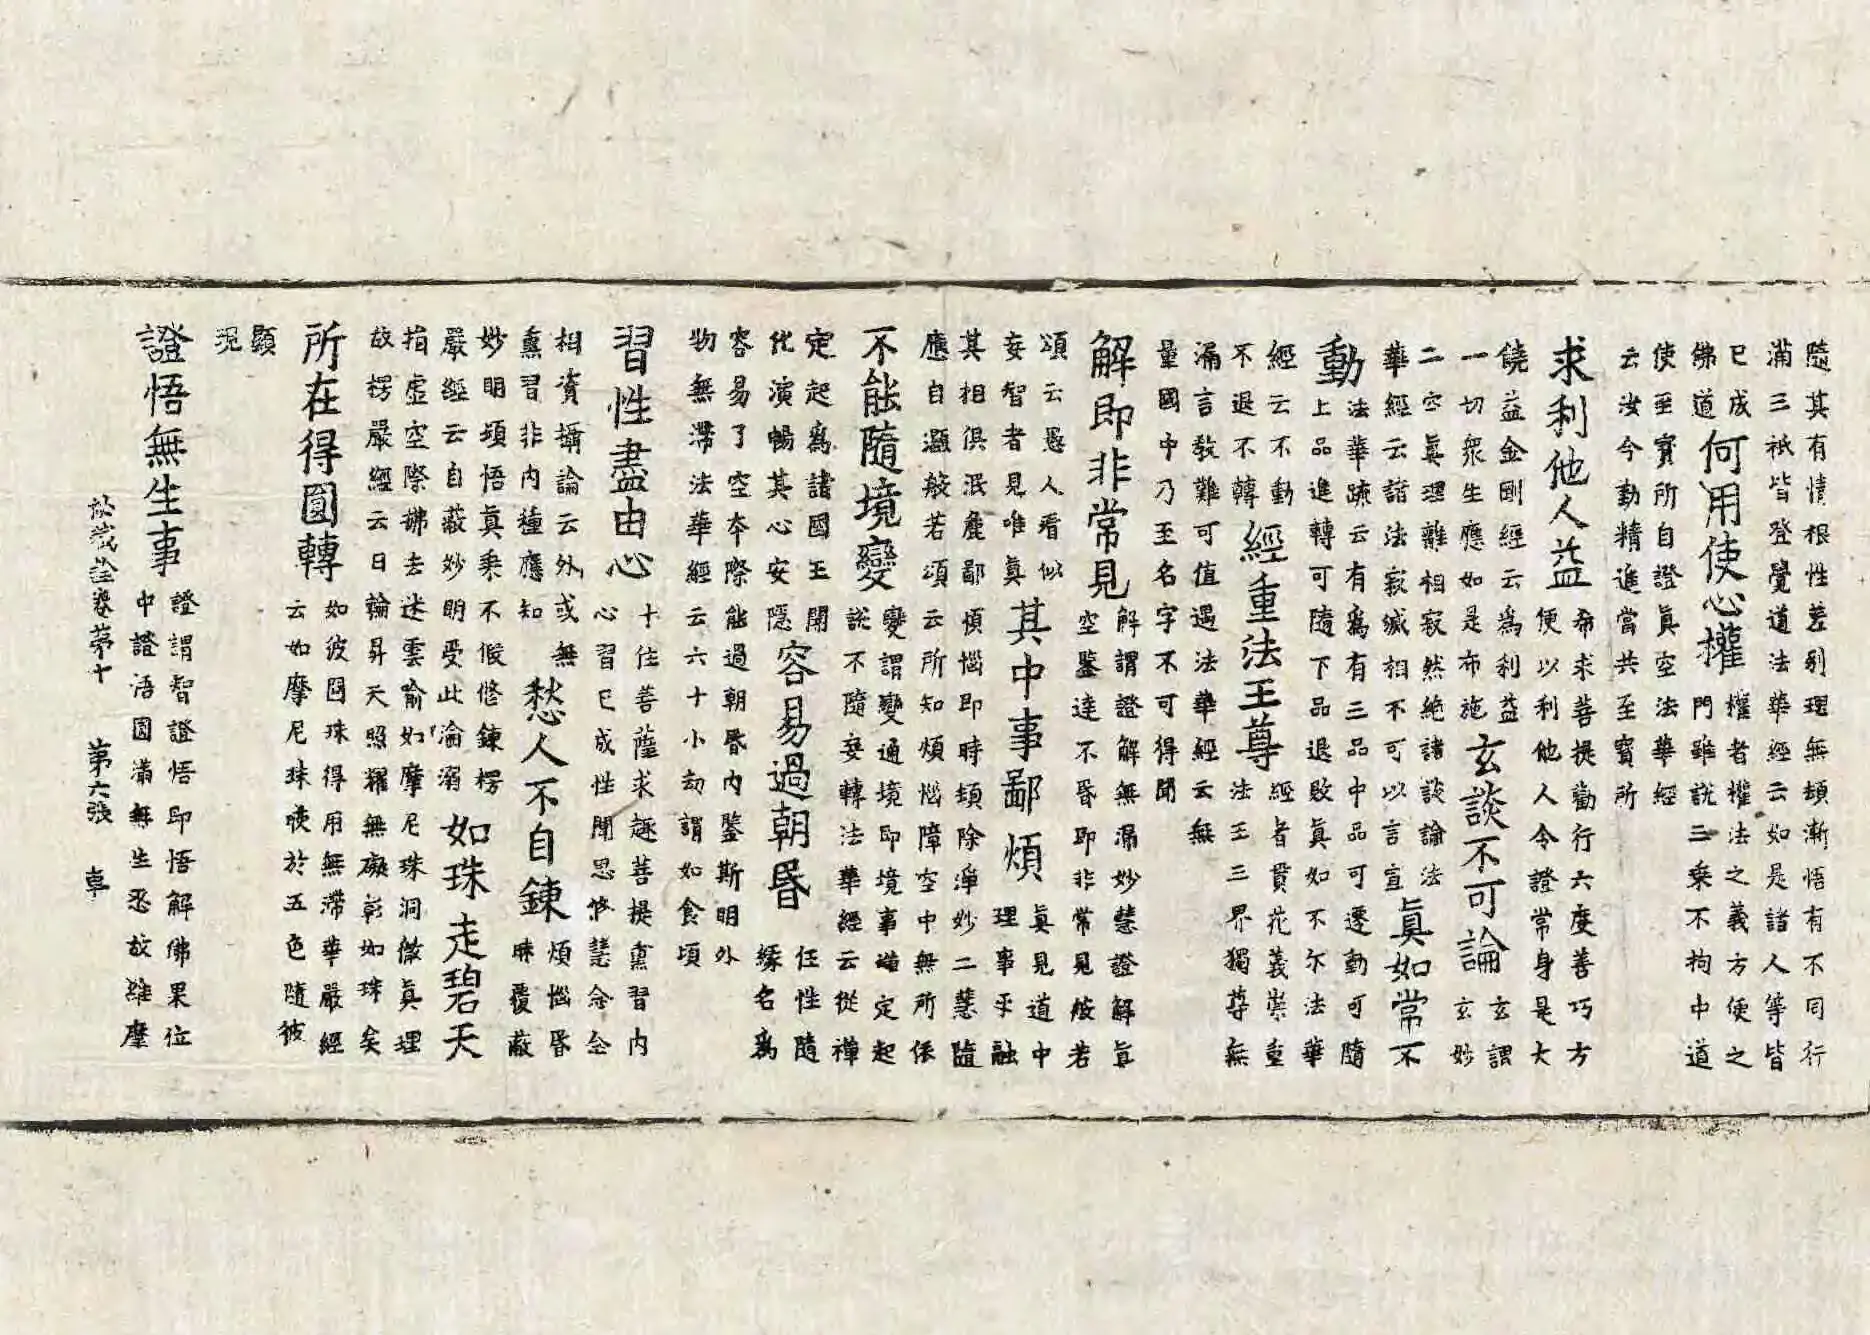 隨其有情根性差別理無頓漸悟有不同行
滿三祇皆登覺道法華經云如是諸人等皆
已成
佛道
何用使心權
權者權法之義方便之
門雖説三乗不拘中道
使至寳所自證真空法華經
云汝今勤精進當共至寳所
求利他人益
希求菩提勸行六度善巧方
便以利他人令證常身是大
饒益金剛經云爲利益
一切衆生應如是布施
玄談不可論
玄謂
玄妙
二空真理離相寂然絶諸談論法
華經云諸法寂滅相不可以言宣
真如常不
動
法華疏云有爲有三品中品可遷動可隨
上品進轉可隨下品退敗真如不尓法華
經云不動
不退不轉
經重法王尊
經者貫花義崇重
法王三界獨尊無
漏言教難可值遇法華經云無
量國中乃至名字不可得聞
解即非常見
解謂證解無漏妙慧證解真
空鑒達不昏即非常見般若
頌云愚人看似
妄智者見唯真
其中事鄙煩
真見道中
理事乎融
其相俱泯麁鄙煩惱即時頓除淨妙二慧隨
應自遍般若頌云所知煩惱障空中無所依
不能隨境變
變謂變通境即境事禪定起
説不隨妄轉法華經云從禪
定起爲諸國王開
化演暢其心安隱
容易過朝昏
任性隨
緣名爲
容易了空本際能過朝昏内鑒斯明外
物無滯法華經云六十小劫謂如食頃
習性盡由心
十住菩薩求趣菩提熏習内
心習已成性聞思修慧念念
相資攝論云外或無
熏習非内種應知
愁人不自鍊
煩惱昏
昧覆蔽
妙明頓悟真乗不假修鍊楞
嚴經云自蔽妙明受此淪溺
如珠走碧天
指虛空際拂去迷雲喻如摩尼珠洞徹真理
故楞嚴經云日輪昇天照耀無礙彰如珠矣
所在得圓轉
如彼圓珠得用無滯華嚴經
云如摩尼珠映於五色隨彼
顯
現
證悟無生事
證謂智證悟即悟解佛果位
中證悟圓滿無生忍故維摩
秘藏詮卷第十 第六張 車